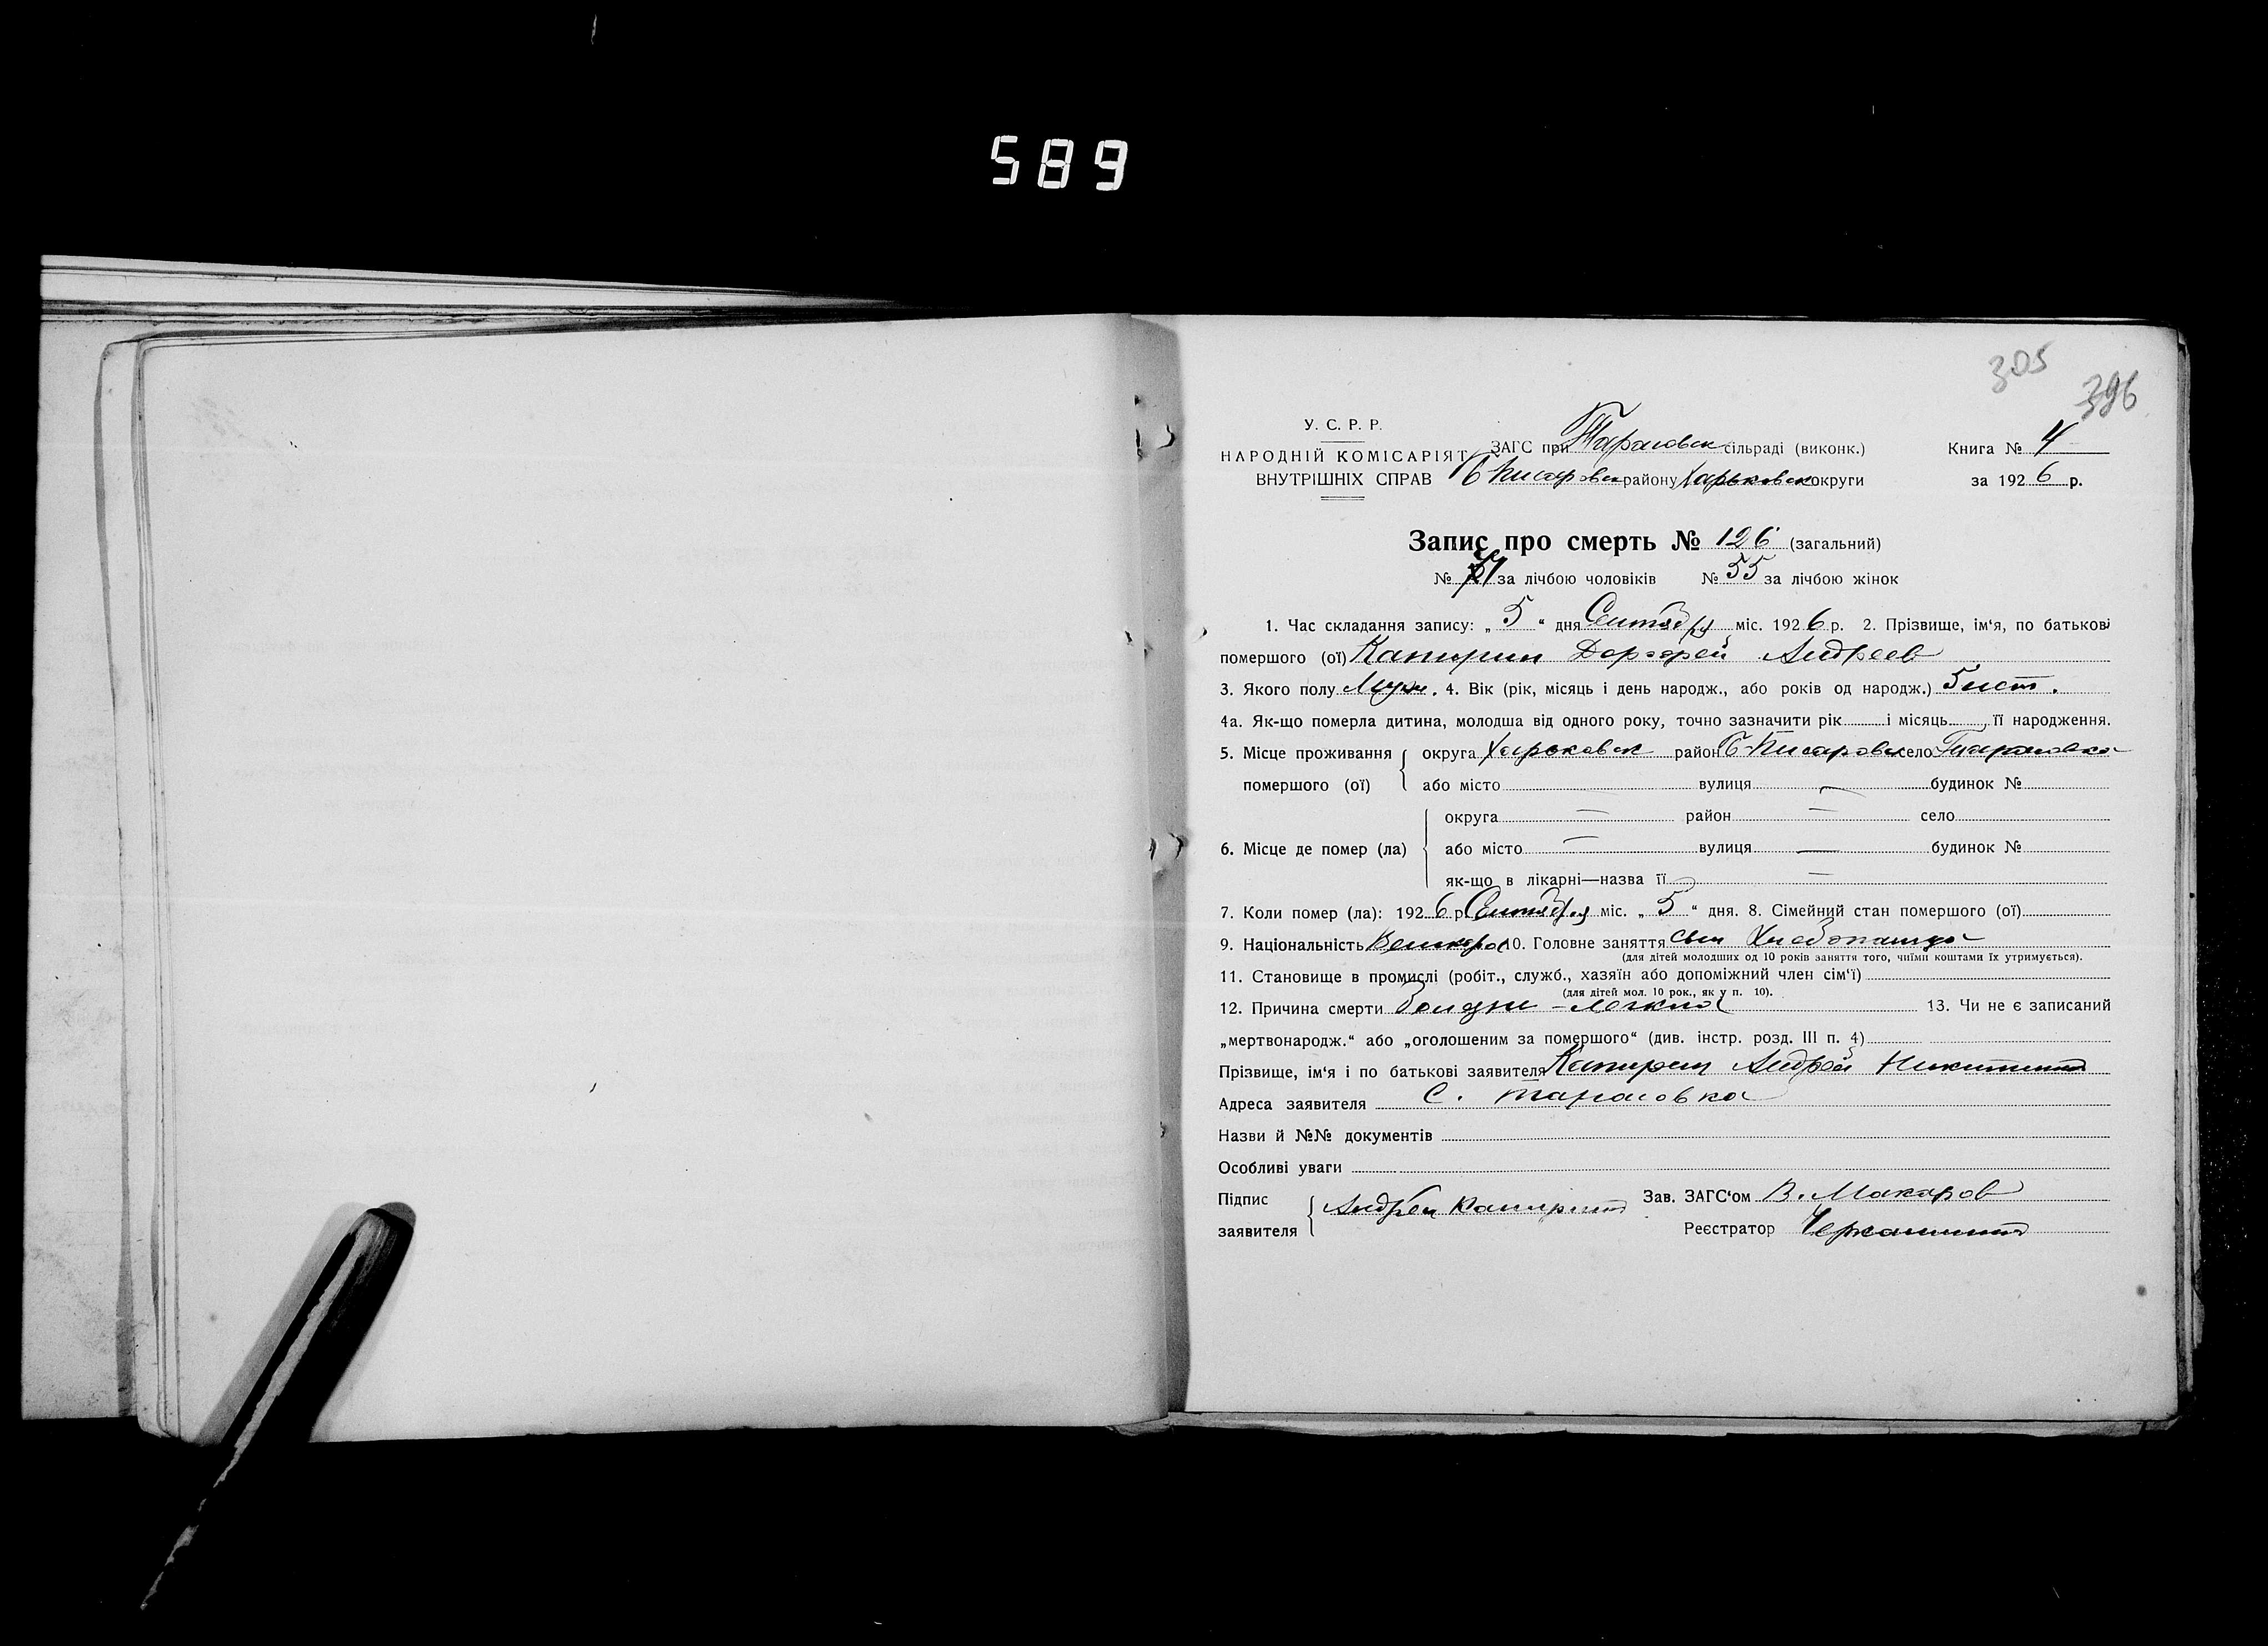 589
305
396
У. С. Р. Р.
НАРОДНІЙ КОМІСАРІЯТ
ВНУТРІШНІХ СПРАВ
ЗАГС при Тарасовск сільраді (виконк.)
Б Писаровск району Харьковск округи
Книга № 4
за 1926 р.
Запис про смерть № 126 (загальний)
№ 71 за лічбою чоловіків № 55 за лічбою жінок
1. Час складання запису: „ 5 “ дня Сентября міс. 1926 р. 2. Прізвище, ім‘я, по батькові
помершого (ої) Капирин Андреев
3. Якого полу Муж. 4. Вік (рік, місяць і день народж., або років од народж.) 5
4а. Як-що померла дитина, молодша від одного року, точно зазначити рік і місяць її народження.
5. Місце проживання помершого (ої) округа Харьковск район Б-Писаровск село Тарасовка
або місто вулиця — будинок №
6. Місце де помер (ла) округа — район — село
або місто — вулиця — будинок №
як-що в лікарні—назва її —
7. Коли помер (ла): 1926 р. Сентября міс. „ 5 “ дня. 8. Сімейний стан помершого (ої)
9. Національність Великорос 10. Головне заняття сын Хлебопашца
(для дітей молодших од 10 років заняття того, чиїми коштами їх утримується).
11. Становище в промислі (робіт., служб., хазяїн або допоміжний член сім‘ї)
(для дітей мол. 10 рок., як у п. 10).
12. Причина смерти 13. Чи не є записаний
„мертвонародж.“ або „оголошеним за помершого“ (див. інстр. розд. III п. 4)
Прізвище, ім‘я і по батькові заявителя Капирин Андрей Никитич
Адреса заявителя С. Тарасовка
Назви й №№ документів
Особливі уваги
Підпис заявителя Андрей Капирин
Зав. ЗАГС‘ом В. Макаров
Реєстратор